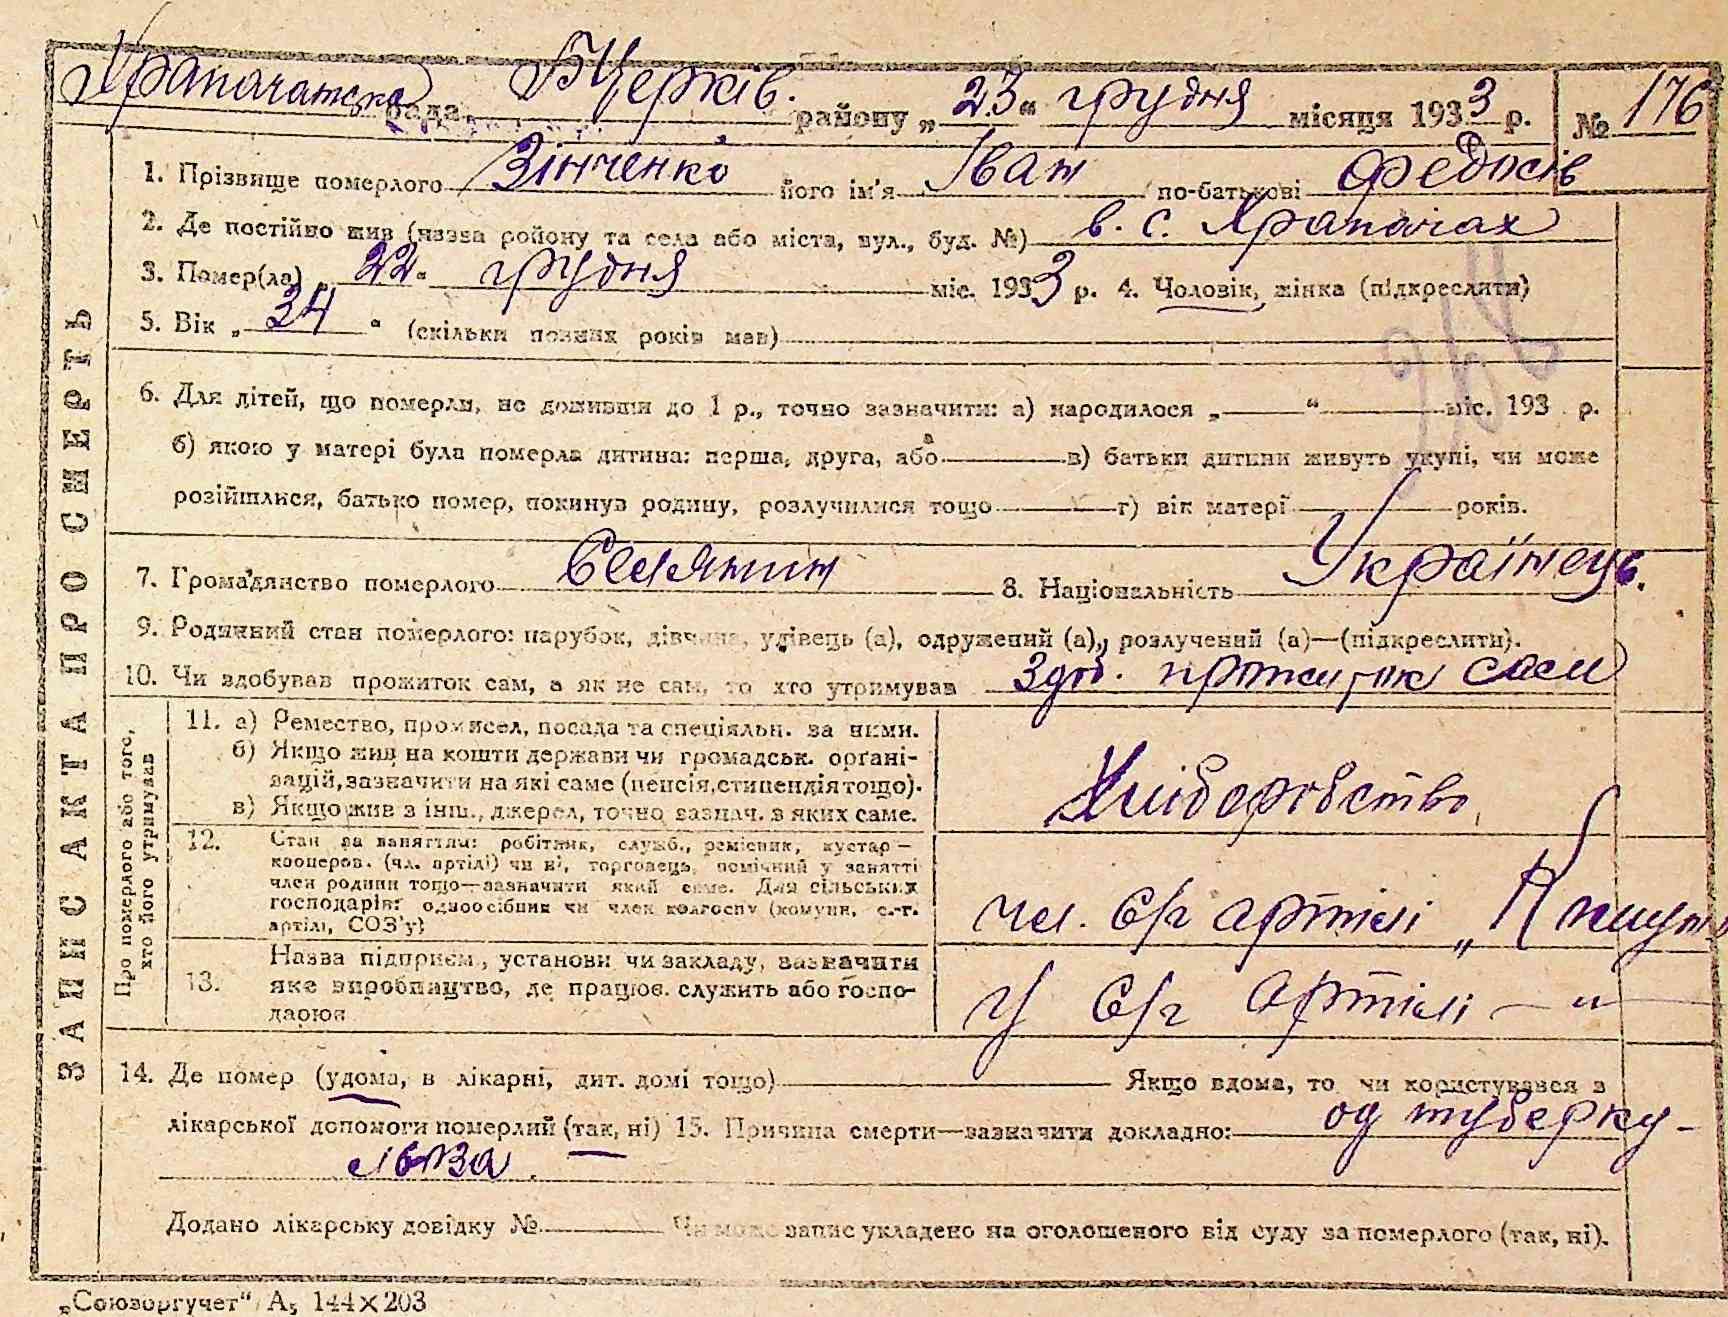 Храпачатська рада БЦерків. району „23“ грудня місяця 1933 р. № 176
ЗАПИС АКТА ПРО СМЕРТЬ
1. Прізвище померлого Зінченко його ім'я Іван по-батькові Федосів
2. Де постійно жив (назва району та села або міста, вул., буд. №) в. с. Храпачах
3. Помер(ла) „22“ грудня міс. 1933 р. 4. Чоловік, жінка (підкреслити)
5. Вік „34“ (скільки повних років мав)
6. Для дітей, що померли, не доживши до 1 р., точно зазначити: а) народилося „ “ міс. 193 р.
б) якою у матері була померла дитина: перша, друга, або в) батьки дитини живуть укупі, чи може
розійшлися, батько помер, покинув родину, розлучилися тощо г) вік матері років.
7. Громадянство померлого Селянин 8. Національність Українець.
9. Родинний стан померлого: парубок, дівчина, удівець (а), одружений (а), розлучений (а)—(підкреслити).
10. Чи здобував прожиток сам, а як не сам, то хто утримував Здоб. прожиток сам
Про померлого або того, хто його утримував
11. а) Ремество, промисел, посада та спеціяльн. за ними.
б) Якщо жив на кошти держави чи громадськ. орґані-
зацій, зазначити на які саме (пенсія, стипендія тощо).
в) Якщо жив з інш., джерел, точно зазнач. з яких саме.
Хліборобство,
12. Стан за заняттям: робітник, служб., ремісник, кустар—
кооперов. (чл. артілі) чи ні, торговець, помічний у занятті
член родини тощо—зазначити який саме. Для сільських
господарів: одноосібник чи член колгоспу (комуни, с.-г.
артілі, СОЗ'у)
чл. С/г артілі „
13. Назва підприєм., установи чи закладу, зазначити
яке виробництво, де працює, служить або госпо-
дарює
У С/г артілі — „ —
14. Де помер (удома, в лікарні, дит. домі тощо) Якщо вдома, то чи користувався з
лікарської допомоги померлий (так, ні) 15. Причина смерти—зазначити докладно: од туберку-
льоза.
Додано лікарську довідку № Чи може запис укладено на оголошеного від суду за померлого (так, ні).
„Союзоргучет“ А₅ 144×203